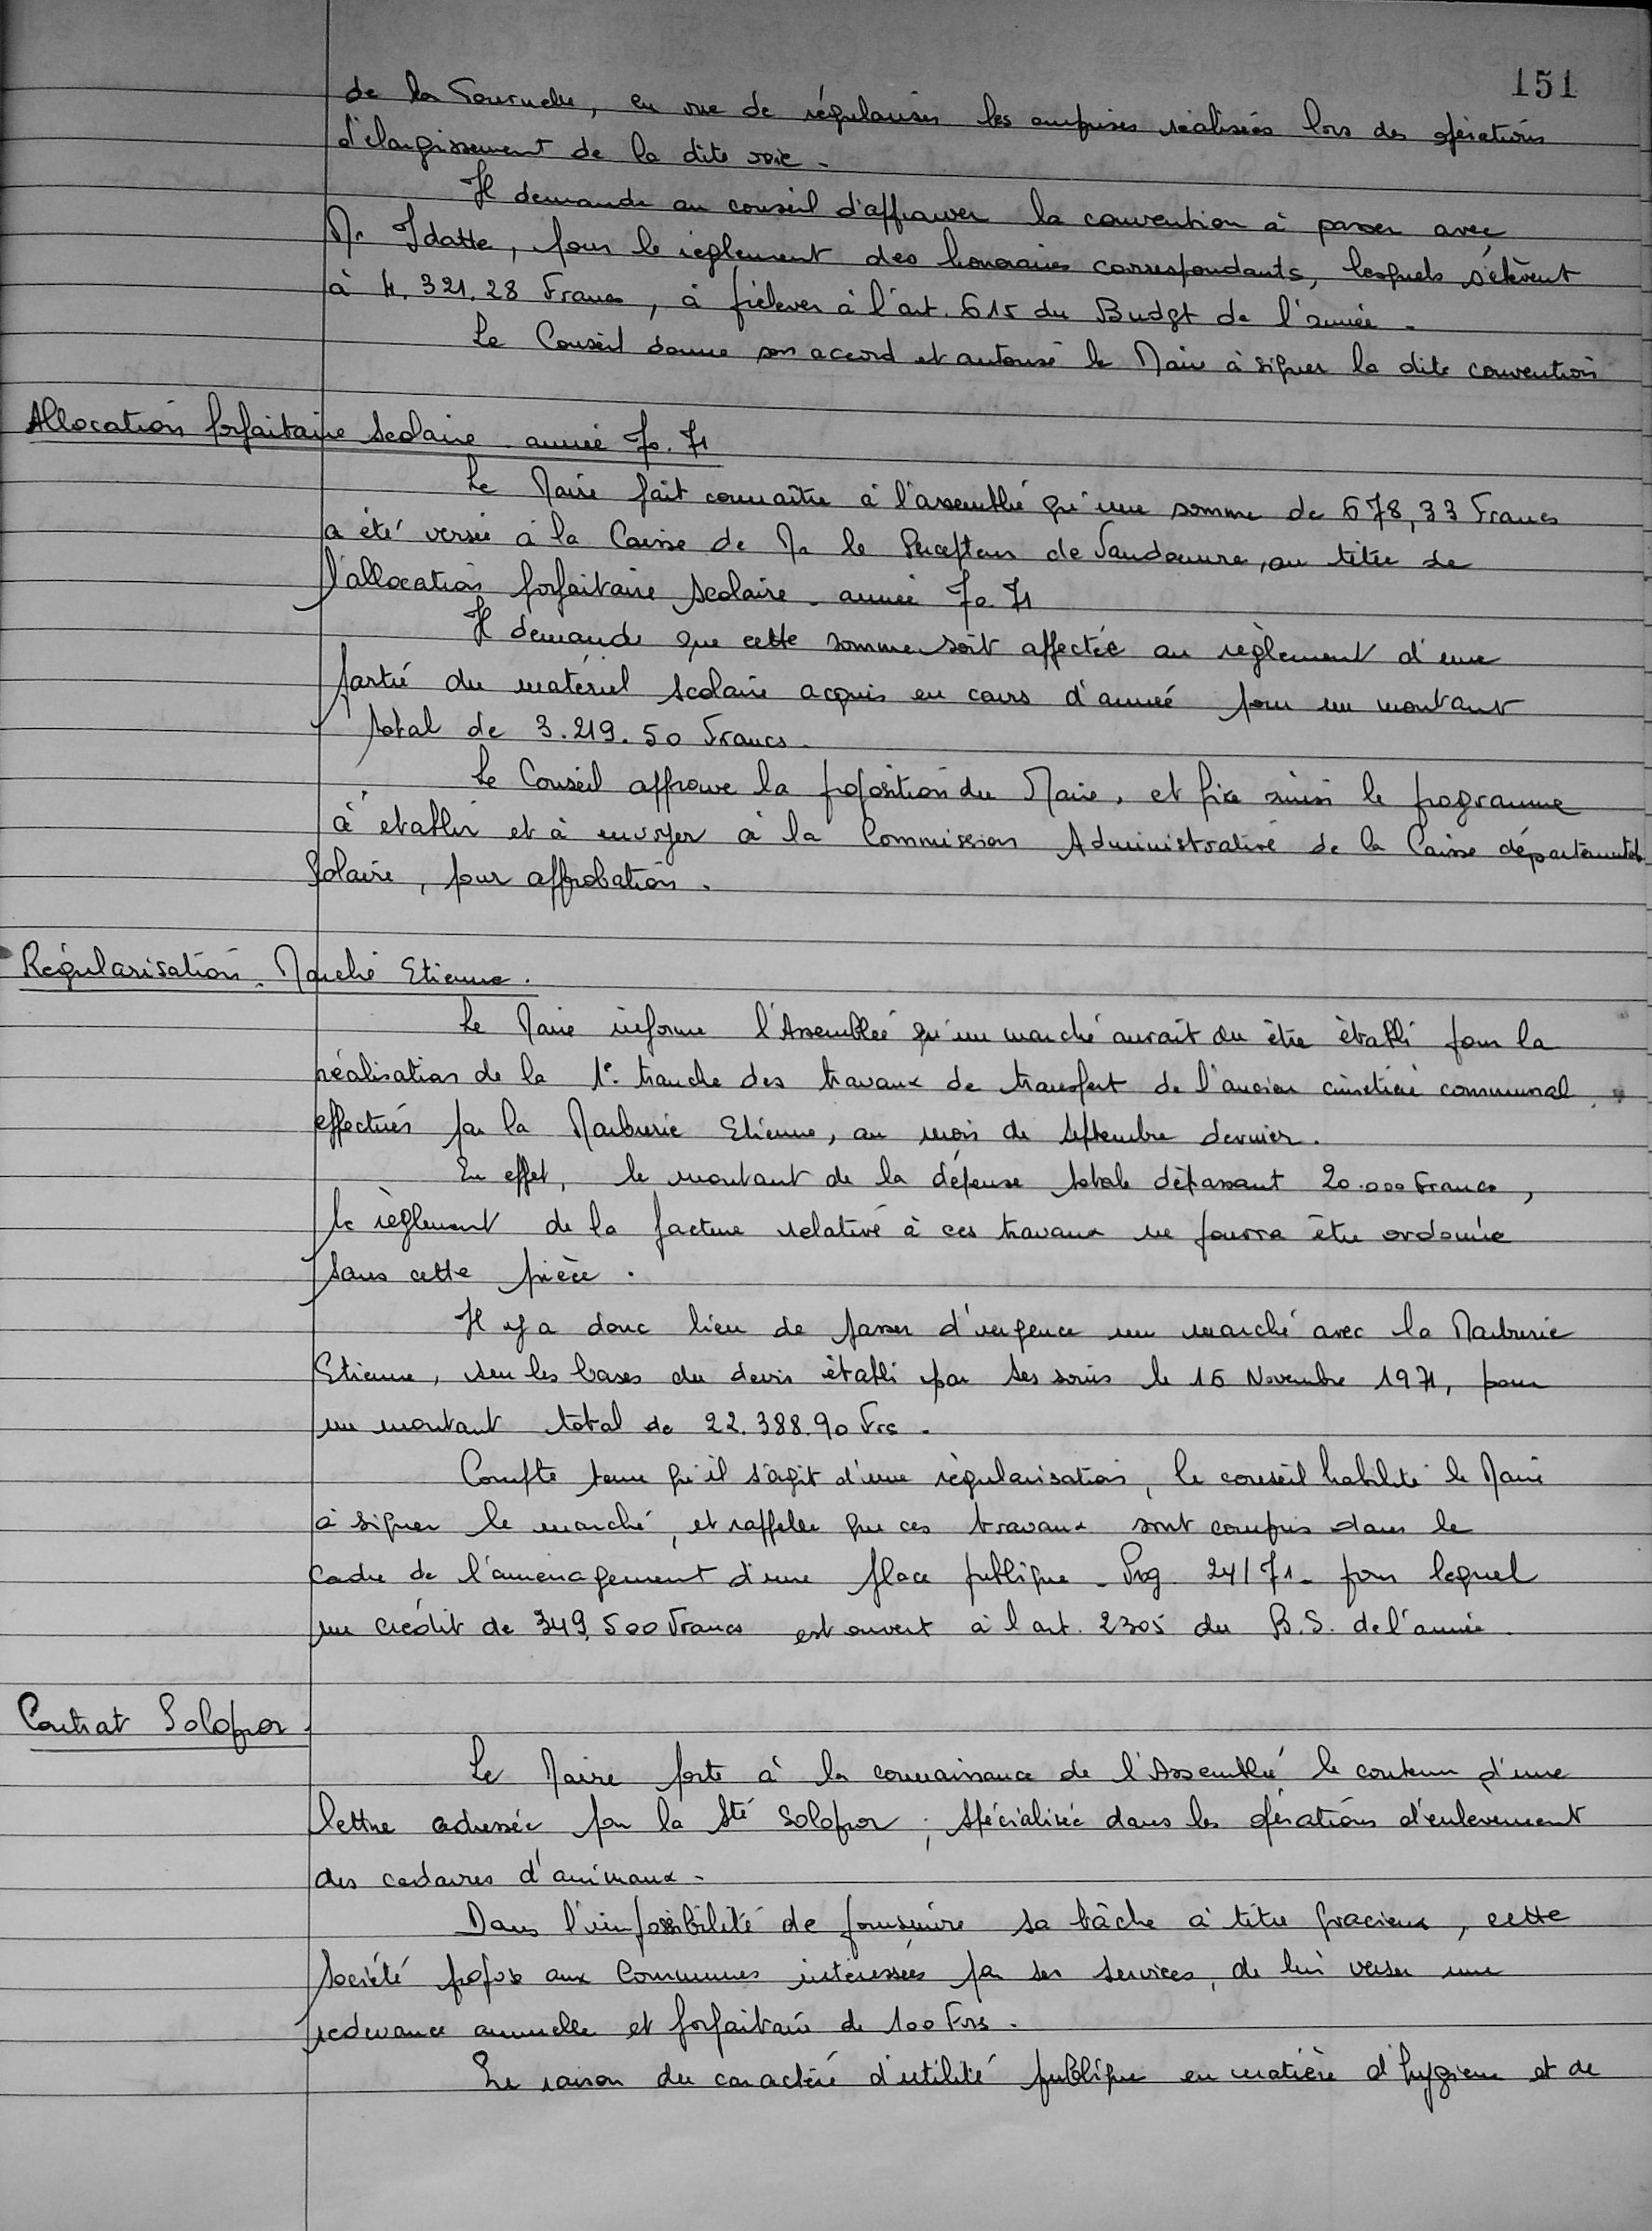 151
de la Tournelle, en vue de régulariser les emprises réalisées lors des opérations
d'élargissement de la dite voie.
Il demande au conseil d'approuver la convention à passer avec
Mr Idatte, pour le règlement des honoraires correspondants, lesquels s'élèvent
à 4.321.28 Francs, à prélever à l'art. 615 du Budget de l'année.
Le Conseil donne son accord et autorise le Maire à signer la dite convention
Allocation forfaitaire scolaire année 70.71
Le Maire fait connaître à l'assemblée qu'une somme de 678,33 Francs
a été versée à la Caisse de Mr le Percepteur de Vandoeuvre, au titre de
l'allocation forfaitaire scolaire. année 70.71
Il demande que cette somme soit affectée au règlement d'une
partie du matériel scolaire acquis en cours d'année pour un montant
total de 3.219.50 Francs.
Le Conseil approuve la proposition du Maire, et fixe ainsi le programme
à établir et à envoyer à la Commission Administrative de la Caisse départementale
Scolaire, pour approbation.
Régularisation. Marché Etienne.
Le Maire informe l'Assemblée qu'un marché aurait du être établi pour la
réalisation de la 1e. tranche des travaux de transfert de l'ancien cimetière communal
effectués par la Marbrerie Etienne, au mois de Septembre dernier.
En effet, le montant de la dépense totale dépassant 20.000 Francs,
le règlement de la facture relative à ces travaux ne pourra être ordonnée
sans cette pièce.
Il y a donc lieu de passer d'urgence un marché avec la Marbrerie
Etienne, sur les bases du devis établi par ses soins le 15 Novembre 1971, pour
un montant total de 22.388.90 Frs.
Compte tenu qu'il s'agit d'une régularisation, le conseil habilite le Maire
à signer le marché, et rappelle que ces travaux sont compris dans le
cadre de l'aménagement d'une place publique - Prog. 24/71 - pour lequel
un crédit de 349.500 Francs est ouvert à l'art. 2305 du B.S. de l'année.
Contrat Solopror.
Le Maire porte à la connaissance de l'Assemblée le contenu d'une
lettre adressée par la Sté Solopror, spécialisée dans les opérations d'enlèvement
des cadavres d'animaux.
Dans l'impossibilité de poursuivre sa tâche à titre gracieux, cette
Société propose aux Communes intéressées par ses services, de lui verser une
redevance annuelle et forfaitaire de 100 Frs.
En raison du caractère d'utilité publique en matière d'hygiène et de